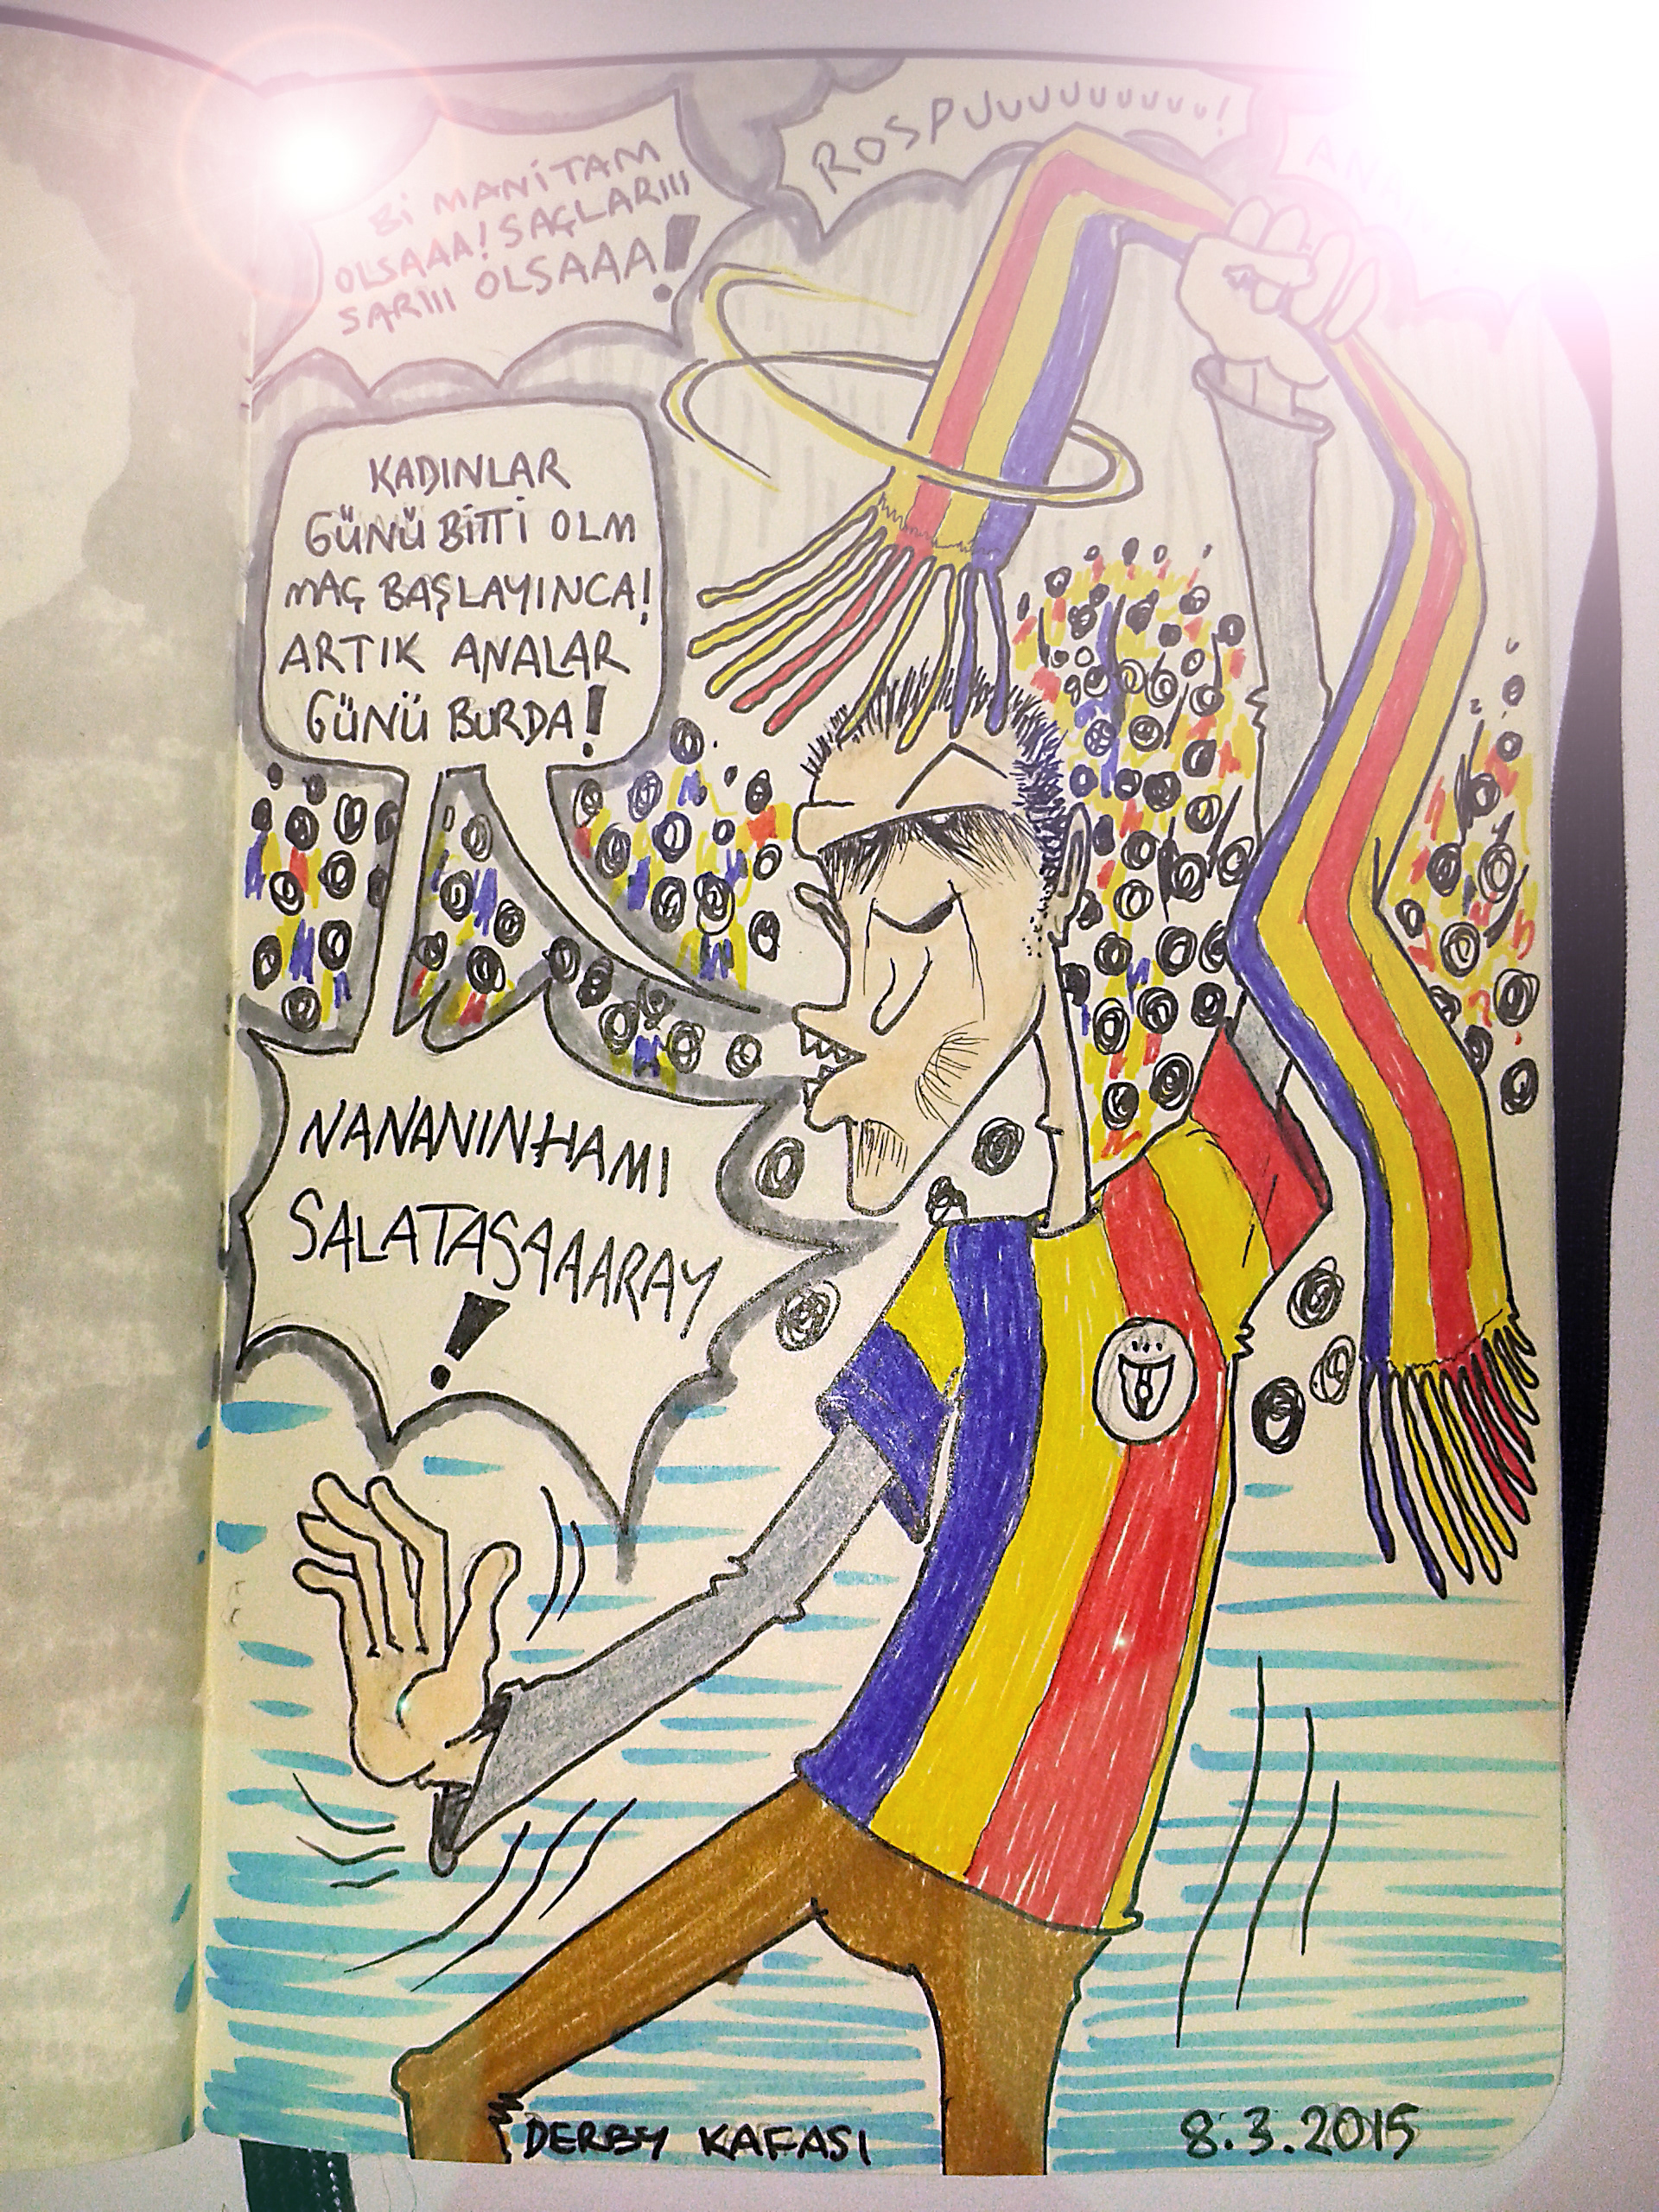 Bİ MANİTAM
OLSAAA! SAÇLARIII
SARIII OLSAAA!
ROSPUUUUUUUUUU!
KADINLAR
GÜNÜ BİTTİ OLM
MAÇ BAŞLAYINCA!
ARTIK ANALAR
GÜNÜ BURDA!
NANANINHAMI
SALATASAAARAY
!
DERBY KAFASI
8.3.2015